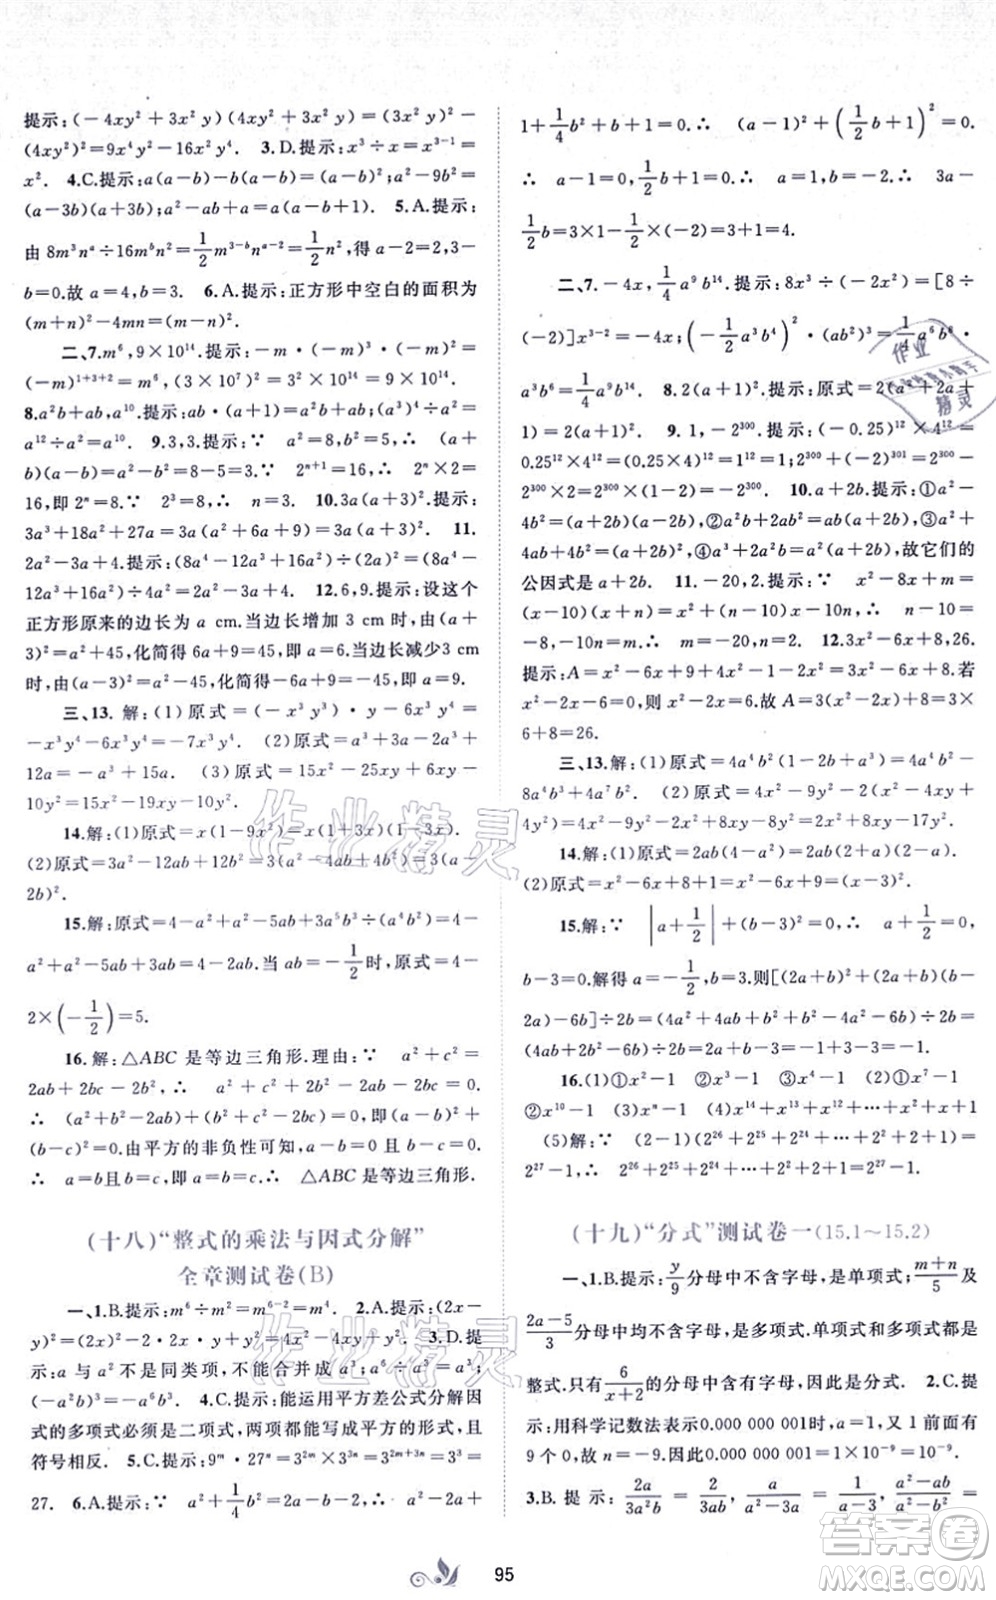 提示:(－4xy²＋3x²y)(4xy²＋3x²y)＝(3x²y)²－
(4xy²)²＝9x⁴y²－16x²y⁴. 3.D.提示:x³÷x＝x³⁻¹＝
x². 4.C.提示:a(a－b)－b(a－b)＝(a－b)²;a²－2ab＝
(a－3b)(a＋3b);a²－ab＋a＝a(a－b＋1). 5.A.提示:
由8m³nᵃ÷16mᵇn²＝1/2m³⁻ᵇnᵃ⁻²＝1/2n²,得a－2＝2,3－
b＝0.故a＝4,b＝3. 6.A.提示:正方形中空白的面积为
(m＋n)²－4mn＝(m－n)².
二、7.m⁶,9×10¹⁴.提示:－m·(－m)²·(－m)³＝
(－m)¹⁺³⁺²＝m⁶,(3×10⁷)×(3×10⁷)＝9×10¹⁴.
8.a²b＋ab,a¹⁰.提示:ab·(a＋1)＝a²b＋ab;(a³)⁴÷a²＝
a¹²÷a²＝a¹⁰. 9.3,3.提示:∵ a²＝8,b²＝5,∴ (a＋
b)(a－b)＝a²－b²＝8－5＝3.∵ 2ⁿ⁺¹＝16,∴ 2ⁿ×2＝
16,即2ⁿ＝8.∵ 2³＝8,∴ n＝3. 10.3a(a＋3)².提示:
3a³＋18a²＋27a＝3a(a²＋6a＋9)＝3a(a＋3)². 11.
2a²－3a＋4.提示:(8a⁴－12a³＋16a²)÷(2a)²＝(8a⁴－
12a³＋16a²)÷4a²＝2a²－3a＋4. 12.6,9.提示:设这个
正方形原来的边长为a cm.当边长增加3 cm时,由(a＋
3)²＝a²＋45,化简得6a＋9＝45,所以a＝6.当边长减少3 cm
时,由(a－3)²＝a²－45,化简得－6a＋9＝－45,所以a＝9.
三、13.解:(1)原式＝(－x³y³)·y－6x³y⁴＝
－x³y⁴－6x³y⁴＝－7x³y⁴. (2)原式＝a²－4＋3a－a²＋
12a＝－a²＋15a. (3)原式＝15x²－10xy＋6xy－
10y²＝15x²－19xy－10y².
14.解:(1)原式＝x(1－9x²)＝x(1＋3x)(1－3x).
(2)原式＝3a²－12ab＋12b²＝3(a²－4ab＋4b²)＝3(a－
2b)².
15.解:原式＝4－a²＋a²－5ab＋3a⁵b³÷(a⁴b²)＝4－
a²＋a²－5ab＋3ab＝4－2ab.当ab＝－1/2时,原式＝4－
2×(－1/2)＝5.
16.解:△ABC是等边三角形.理由:∵ a²＋c²＝
2ab＋2bc－2b²,∴ a²＋c²－2ab－2bc＋2b²＝0.
∴ (a²＋b²－2ab)＋(b²＋c²－2bc)＝0,即(a－b)²＋
(b－c)²＝0,由平方的非负性可知a－b＝0且b－c＝0.
∴ a＝b且b＝c.∴ a＝b＝c.∴ △ABC是等边三角形.
(十八)“整式的乘法与因式分解”
全章测试卷(B)
一、1.B.提示:m⁶÷m²＝m⁶⁻²＝m⁴. 2.A.提示:(2x－
y)²＝(2x)²－2·2x·y＋y²＝4x²－4xy＋y². 3.D.提
示:a与a²不是同类项,不能合并成a³;a⁶÷a³＝a³;
(－a²b)³＝－a⁶b³. 4.C.提示:能运用平方差公式分解因
式的多项式必须是二项式,两项都能写成平方的形式,且
符号相反. 5.C.提示:9ᵐ·27ⁿ＝3²ᵐ×3³ⁿ＝3²ᵐ⁺³ⁿ＝3³＝
27. 6.A.提示:∵ a²＋1/4b²＝2a－b－2,∴ a²－2a＋
1＋1/4b²＋b＋1＝0.∴ (a－1)²＋(1/2b＋1)²＝0.
∴ a－1＝0,1/2b＋1＝0.∴ a＝1,b＝－2.∴ 3a－
1/2b＝3×1－1/2×(－2)＝3＋1＝4.
二、7.－4x,1/4a⁹b¹⁴.提示:8x³÷(－2x²)＝[8÷
(－2)]x³⁻²＝－4x;(－1/2a³b⁴)²·(ab²)³＝1/4a⁶b⁸·
a³b⁶＝1/4a⁹b¹⁴. 8.2(a＋1)².提示:原式＝2(a²＋2a＋
1)＝2(a＋1)². 9.1,－2³⁰⁰.提示:(－0.25)¹²×4¹²＝
0.25¹²×4¹²＝(0.25×4)¹²＝1¹²＝1;2³⁰⁰＋(－2)³⁰¹＝2³⁰⁰－
2³⁰⁰×2＝2³⁰⁰×(1－2)＝－2³⁰⁰. 10.a＋2b.提示:①a²－
4b²＝(a＋2b)(a－2b),②a²b＋2ab²＝ab(a＋2b),③a²＋
4ab＋4b²＝(a＋2b)²,④a³＋2a²b＝a²(a＋2b),故它们的
公因式是a＋2b. 11.－20,2.提示:∵ x²－8x＋m＝
(x－10)(x＋n)＝x²＋(－10＋n)x－10n,∴ n－10＝
－8,－10n＝m.∴ m＝－20,n＝2. 12.3x²－6x＋8,26.
提示:A＝x²－6x＋9＋4x²－1－2x²＝3x²－6x＋8.若
x²－2x－6＝0,则x²－2x＝6.故A＝3(x²－2x)＋8＝3×
6＋8＝26.
三、13.解:(1)原式＝4a⁴b²(1－2a＋3b)＝4a⁴b²－
8a⁵b²＋12a⁴b³. (2)原式＝2(x²－8xy＋xy－8y²)－(4x²－
4y²)＝2x²－14xy－16y²－x²－4xy－y²＝x²－18xy－17y².
14.解:(1)原式＝2ab(4－a²)＝2ab(2＋a)(2－a).
(2)原式＝x²－6x＋9＝(x－3)².
15.解:∵ |a＋1/2|＋(b－3)²＝0,∴ a＋1/2＝0,
b－3＝0.解得a＝－1/2,b＝3.则[(2a＋b)²＋(2a＋b)(b－
2a)－6b]÷2b＝(4a²＋4ab＋b²＋b²－4a²－6b)÷2b＝
(4ab＋2b²－6b)÷2b＝2a＋b－3＝－1＋3－3＝－1.
16.(1)①x²－1 ②x³－1 ③x⁴－1 (2)①x⁷－1
②x¹⁰－1 (3)xⁿ－1 (4)x¹⁴＋x¹³＋x¹²＋…＋x²＋x＋1
(5)解:∵ (2－1)(2²⁶＋2²⁵＋2²⁴＋…＋2²＋2＋1)＝
2²⁷－1,∴ 2²⁶＋2²⁵＋2²⁴＋…＋2²＋2＋1＝2²⁷－1.
(十九)“分式”测试卷一(15.1～15.2)
一、1.B.提示:y/9分母中不含字母,是单项式;(m＋n)/5及
(2a－5)/3分母中均不含字母,是多项式.单项式和多项式都是
整式.而6/(x＋2)的分母中含有字母,所以是分式. 2.C.提
示:用科学记数法表示0.000 000 001时,a＝1,又1前面有
9个0,故n＝－9.因此0.000 000 001＝1×10⁻⁹＝10⁻⁹.
3.B.提示:2a/3a²b＝2/3ab,a/(a²－3a)＝1/(a－3),(a²－ab)/(a²－b²)＝
95
作业精灵
作业精灵
作业
精灵
答案圈
MXQE.COM